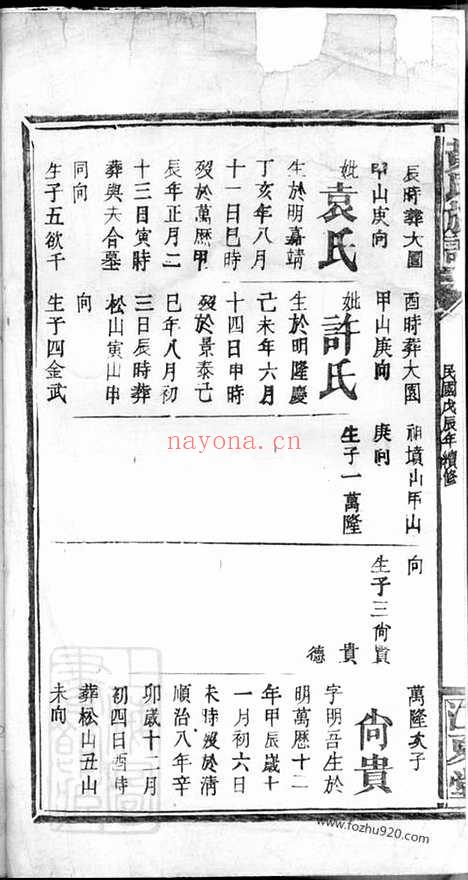 民國戊辰年續修
辰時葬大園
甲山庚向
妣袁氏
生於明嘉靖
丁亥年八月
十一日巳時
歿於萬曆甲
辰年正月二
十三日寅時
葬與夫合墓
同向
生子五欲千
酉時葬大園
甲山庚向
妣許氏
生於明隆慶
己未年六月
十四日申時
歿於景泰己
巳年八月初
三日辰時葬
松山寅山申
向
生子四金武
祖墳山甲山
庚向
生子一萬隆
向
生子三尙賢
貴
德
萬隆次子
尙貴
字明吾生於
明萬曆十二
年甲辰歲十
一月初六日
未時歿於淸
順治八年辛
卯歲十二月
初四日酉時
葬松山丑山
未向
nayona.cn
www.fozhu920.com